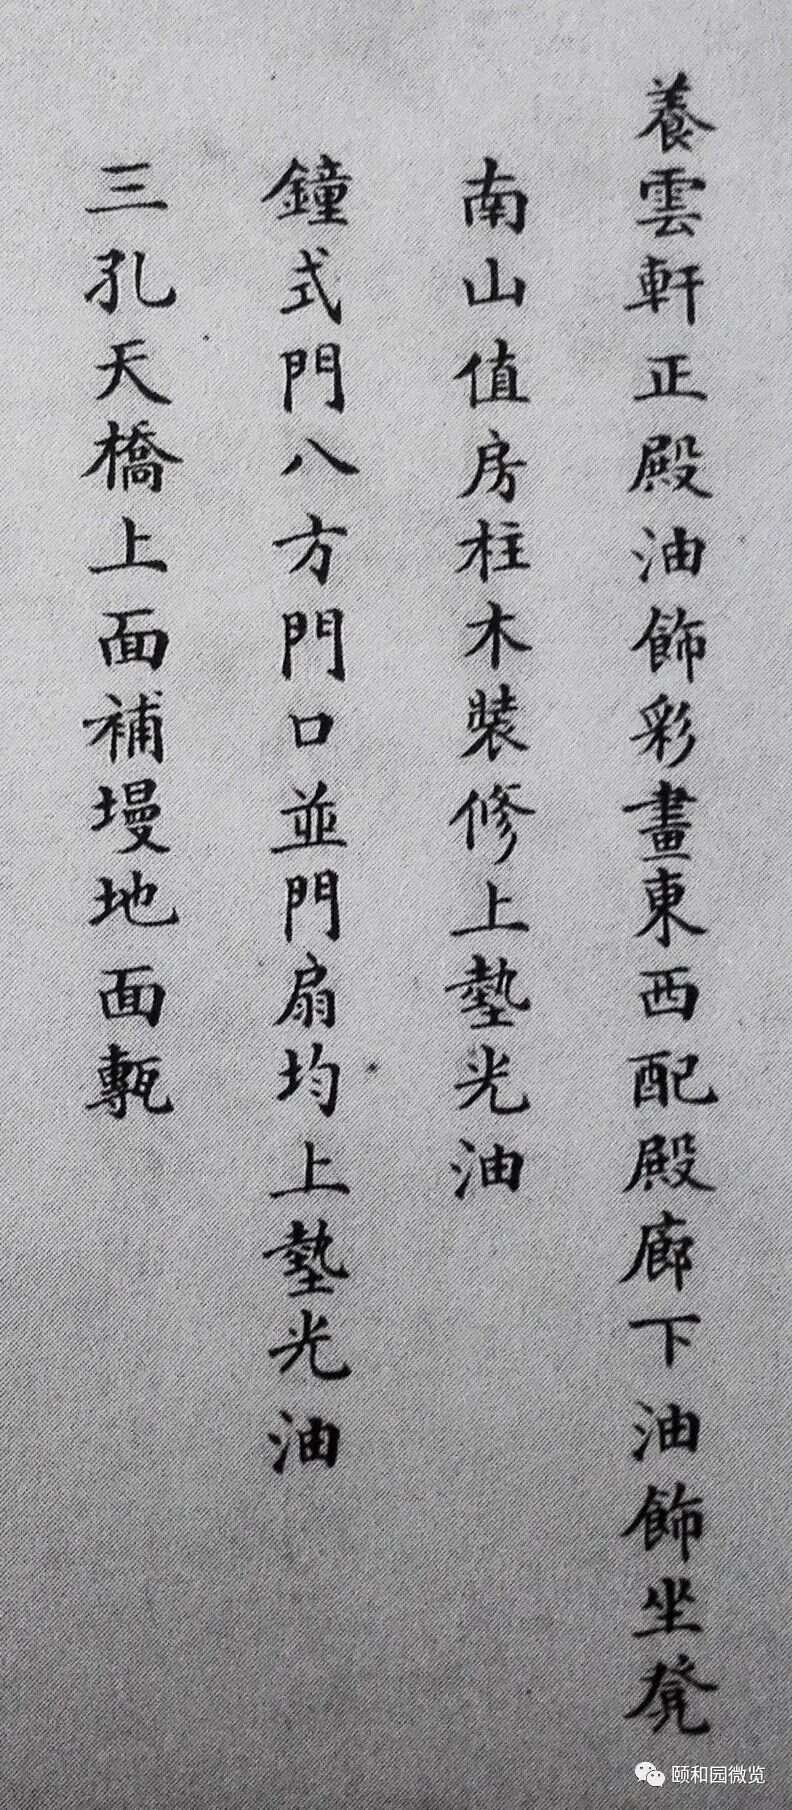 養雲軒正殿油飾彩畫東西配殿廊下油飾坐凳
南山值房柱木裝修上墊光油
鐘式門八方門口並門扇均上墊光油
三孔天橋上面補墁地面甎
颐和园微览